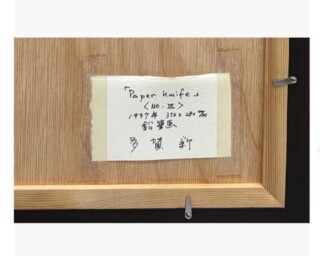 「Paper knife」
〈NO. Ⅲ〉
1997年 350×280㎜
鉛筆画
多賀 新